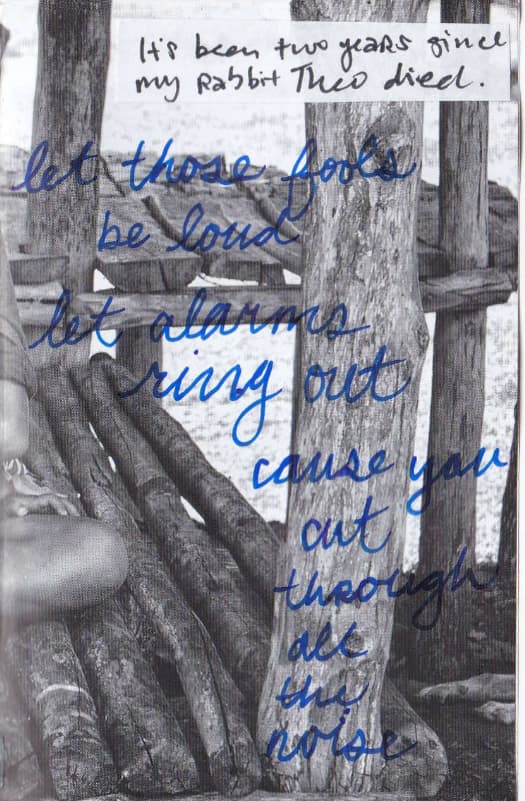 It's been two years since
my Rabbit Theo died.
let those fools
be loud
let alarms
ring out
cause you
cut
through
all
the
noise